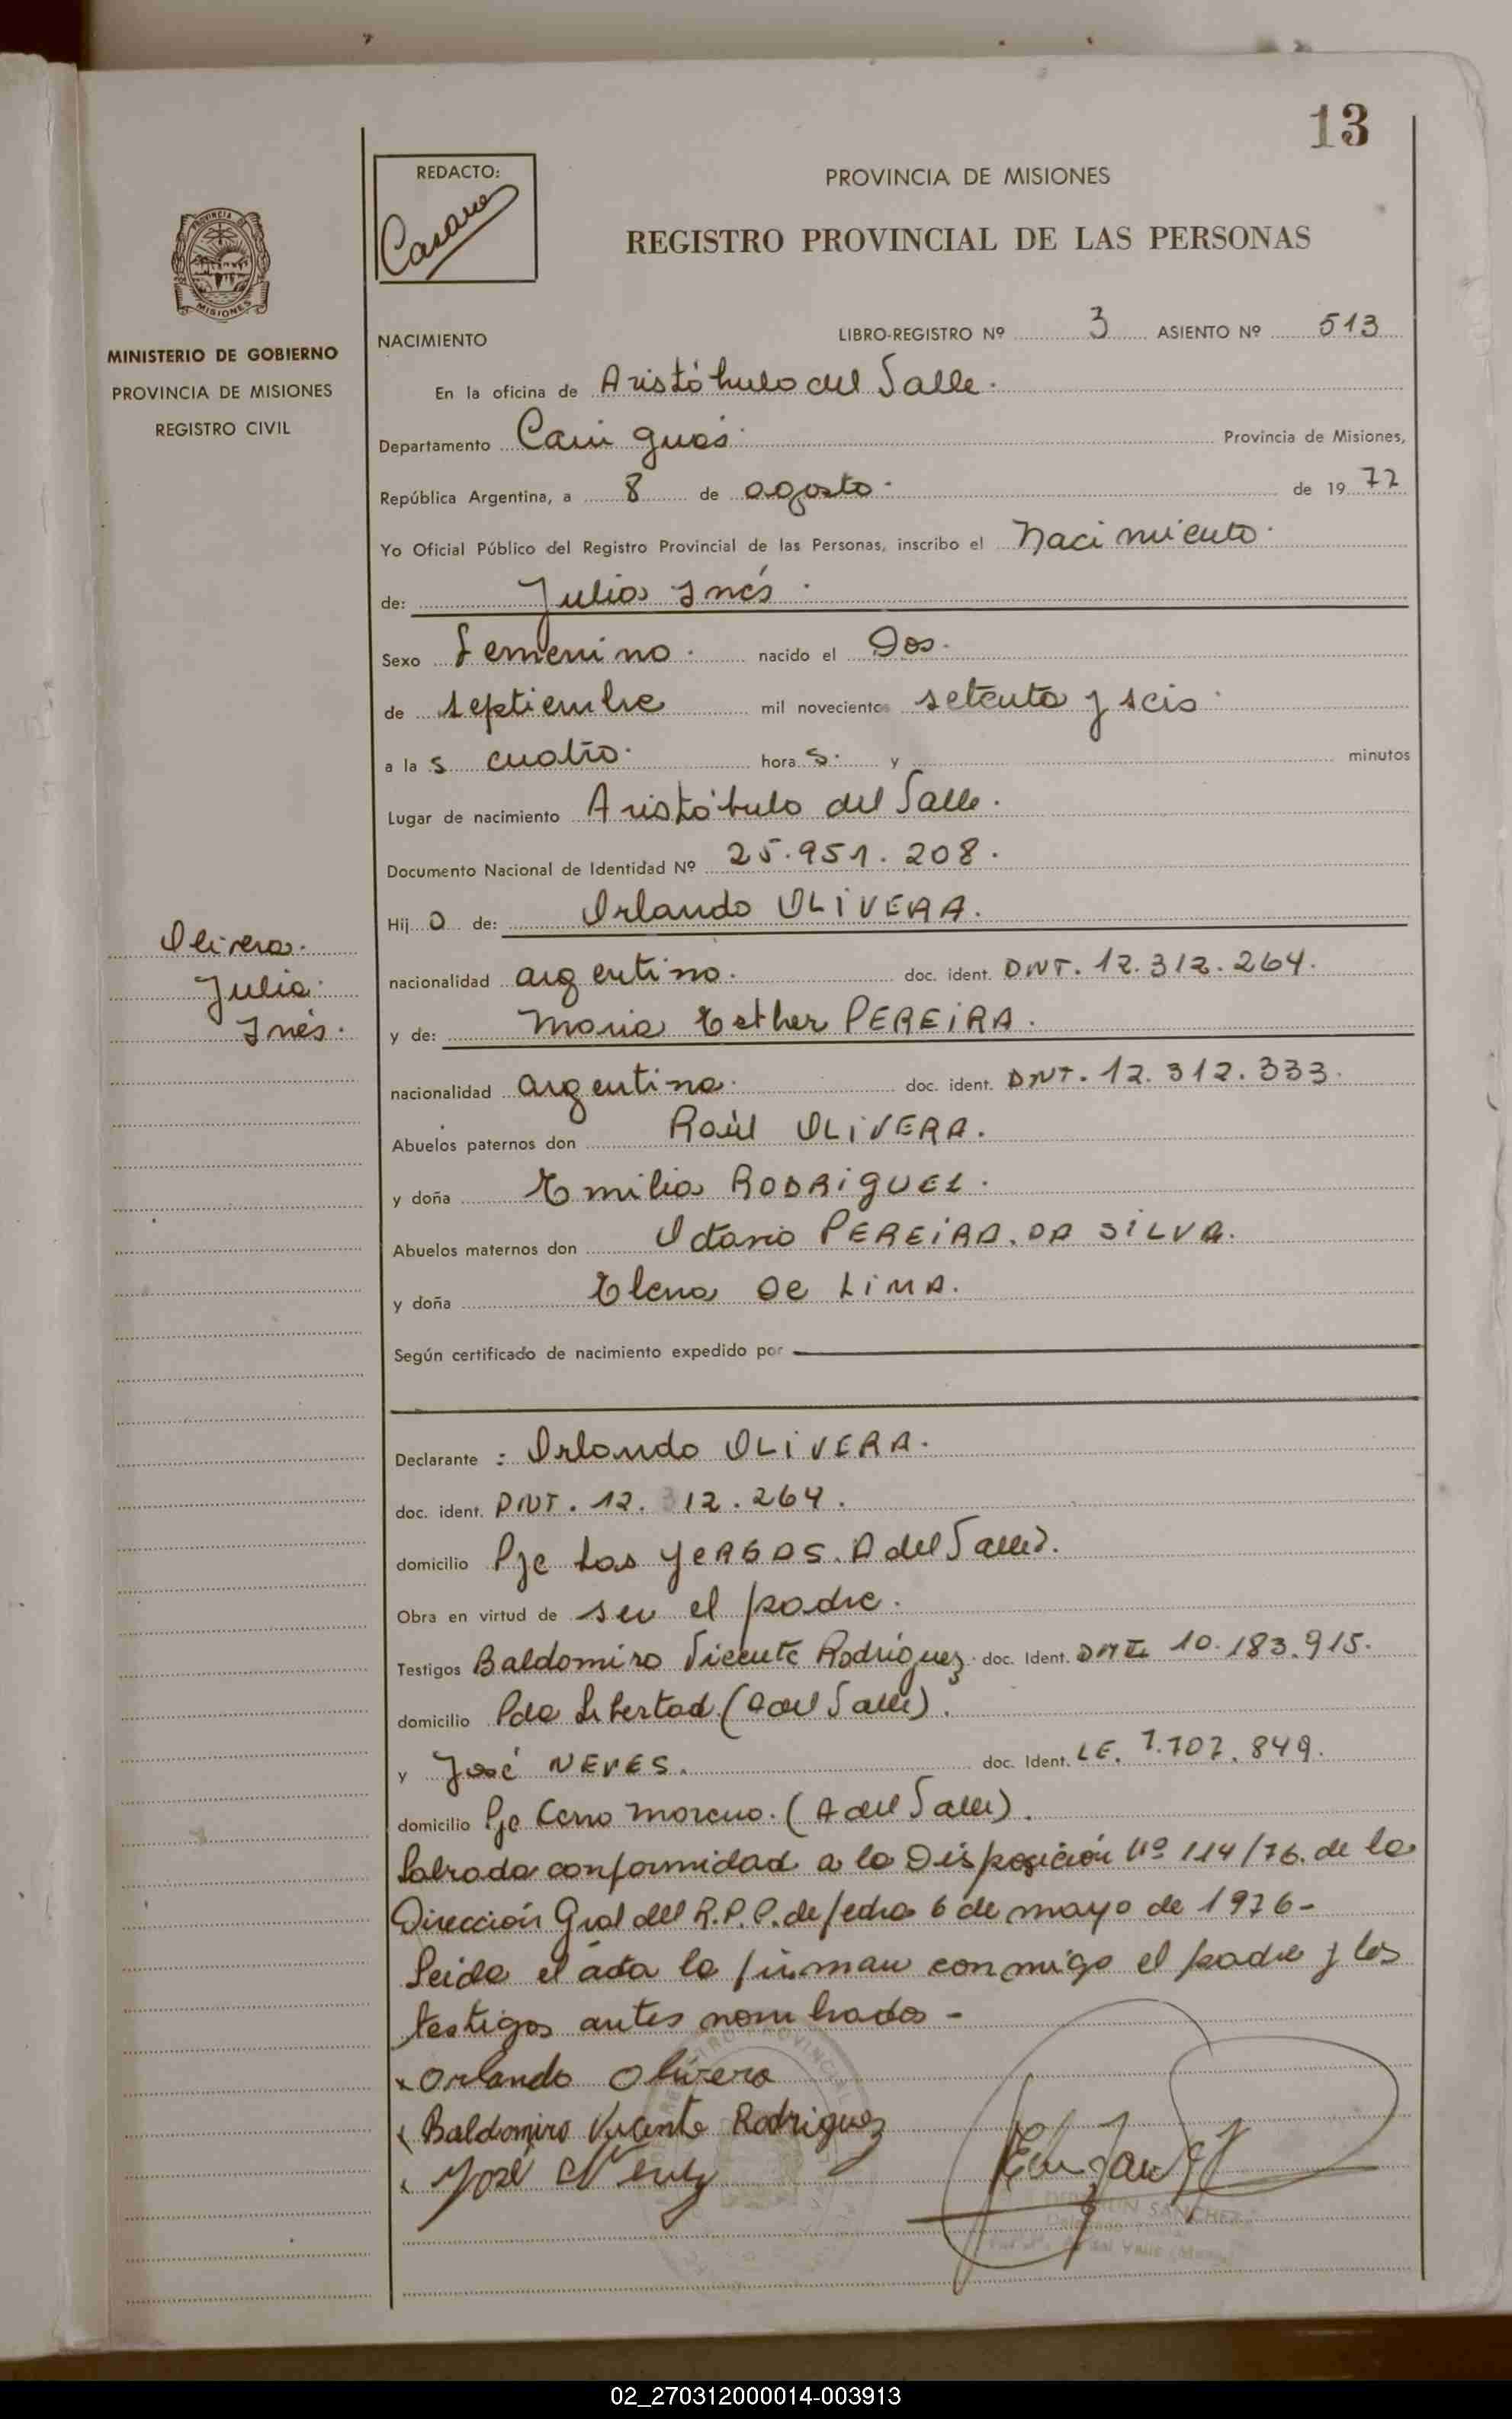 13
REDACTO:
PROVINCIA DE MISIONES
REGISTRO PROVINCIAL DE LAS PERSONAS
PROVINCIA DE
MISIONES
MINISTERIO DE GOBIERNO
PROVINCIA DE MISIONES
REGISTRO CIVIL
NACIMIENTO LIBRO-REGISTRO Nº 3 ASIENTO Nº 513
En la oficina de Aristóbulo del Valle.
Departamento Cain guás. Provincia de Misiones,
República Argentina, a 8 de agosto. de 1977
Yo Oficial Público del Registro Provincial de las Personas, inscribo el Nacimiento.
de: Julia Inés.
Sexo femenino. nacido el Dos.
de septiembre mil novecientos setenta y seis.
a la s cuatro. hora s. y minutos
Lugar de nacimiento Aristóbulo del Valle.
Documento Nacional de Identidad Nº 25.951.208.
Hij a de: Orlando OLIVERA.
nacionalidad argentino. doc. ident. DNI. 12.312.264.
y de: Maria Esther PEREIRA.
nacionalidad argentina. doc. ident. DNI. 12.312.333.
Abuelos paternos don Raúl OLIVERA.
y doña Emilia RODRIGUEZ.
Abuelos maternos don Otario PEREIRA. DA SILVA.
y doña Elena De LIMA.
Según certificado de nacimiento expedido por
Declarante : Orlando OLIVERA.
doc. ident. DNI. 12.312.264.
domicilio Pje Las YERBAS. A del Valle).
Obra en virtud de ser el padre.
Testigos Baldomiro Vicente Rodríguez. doc. Ident. DNI 10.183.915.
domicilio Pda Libertad. (A del Valle).
y José NEVES. doc. Ident. LE. 7.707.849.
domicilio Pje Cerro Moreno. (A del Valle).
labrada conformidad a la Disposición Nº 114/76. de la
Dirección Gral del R.P.P. de fecha 6 de mayo de 1976-
Leida el acta la firman conmigo el padre y los
testigos antes nombrados -
x Orlando Olivera
x Baldomiro Vicente Rodriguez
x José Neves
SANCHEZ
Olivera.
Julia.
Inés.
02_270312000014-003913